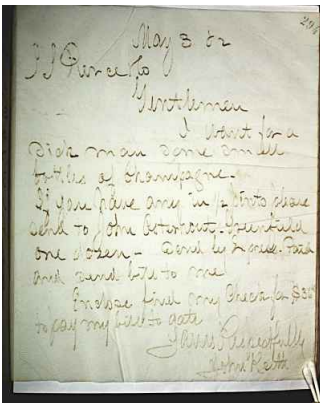 294
May 3 62
S S Pierce & Co
Gentlemen
I want for a
Sick man some small
bottles of Champagne -
If you have any in 1/2 pints please
send to John Greenfield
one dozen - Send by Express. Paid
and send bill to me
Enclose find my Check for
to pay my bill to date
Yours Respectfully
John Keith